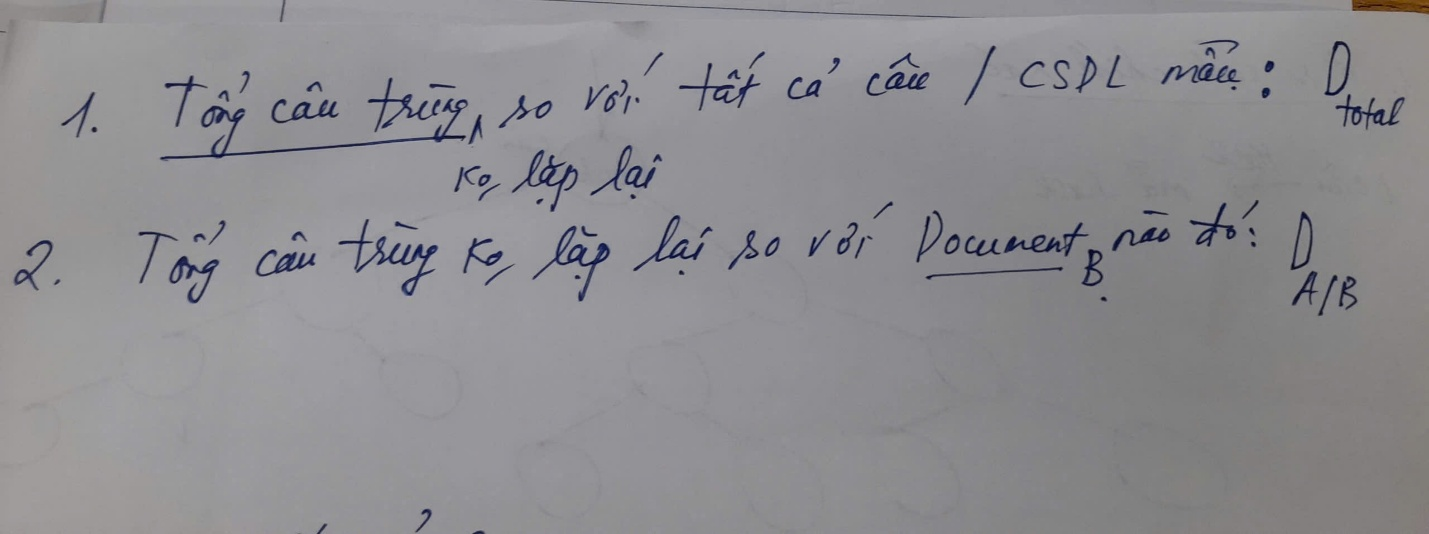 1. Tổng câu trùng ko lặp lại so với tất cả câu / CSDL mẫu : D total
2. Tổng câu trùng ko lặp lại so với Document B nào đó : D A/B